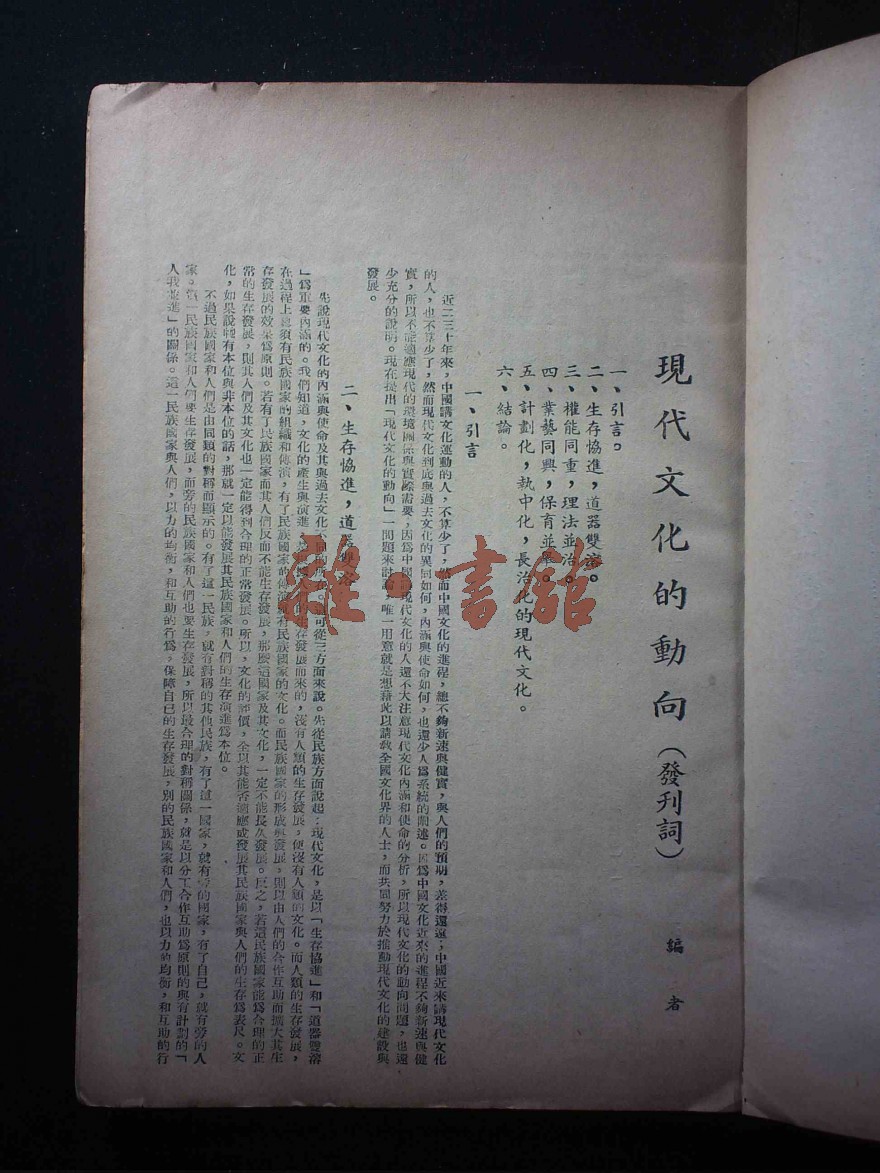 現代文化的動向（發刊詞）
編者
一、引言。
二、生存協進，道器雙溶。
三、權能同重，理法並治。
四、業藝同興，保育並舉。
五、計劃化，執中化，長治化的現代文化。
六、結論。
一、引言
近二三十年來，中國講文化運動的人，不算少了，然而中國文化的進程，總不夠新速與健實，與人們的預期，差得還遠；中國近來講現代文化
的人，也不算少了，然而現代文化到底與過去文化的異同如何，內涵與使命如何，也還少人爲系統的闡述。因爲中國文化近來的進程不夠新速與健
實，所以不能適應現代的環境關係與實際需要，因爲中國講現代文化的人還不大注意現代文化內涵和使命的分析，所以現代文化的動向問題，也還
少充分的說明。現在提出「現代文化的動向」一問題來討論，唯一用意就是想藉此以請教全國文化界的人士，而共同努力於推動現代文化的建設與
發展。
二、生存協進，道器雙溶
先說現代文化的內涵與使命及其與過去文化不同的所在，這可從三方面來說。先從民族方面說起：現代文化，是以「生存協進」和「道器雙溶
」爲重要內涵的。我們知道，文化的產生與演進，是根據人類的生存發展而來的，沒有人類的生存發展，便沒有人類的文化。而人類的生存發展，
在過程上總須有民族國家的組織和傳演，有了民族國家的傳演就有民族國家的文化。而民族國家的形成與發展，則以由人們的合作互助而擴大其生
存發展的效果爲原則。若有了民族國家而其人們反而不能生存發展，那麼這國家及其文化，一定不能長久發展。反之，若這民族國家能爲合理的正
常的生存發展，則其人們及其文化也一定能得到合理的正常發展。所以，文化的評價，全以其能否適應或發展其民族國家與人們的生存爲表尺。文
化，如果說製有本位與非本位的話，那就一定以能發展其民族國家和人們的生存演進爲本位。
不過民族國家和人們是由同類的對稱而顯示的。有了這一民族，就有對稱的其他民族，有了這一國家，就有旁的國家，有了自己，就有旁的人
家。這一民族國家和人們要生存發展，而旁的民族國家和人們也要生存發展，所以最合理的對稱關係，就是以分工合作互助爲原則的與有計劃的「
人我並進」的關係。這一民族國家與人們，以力的均衡，和互助的行爲，保障自己的生存發展，別的民族國家和人們，也以力的均衡，和互助的行
雜·書館